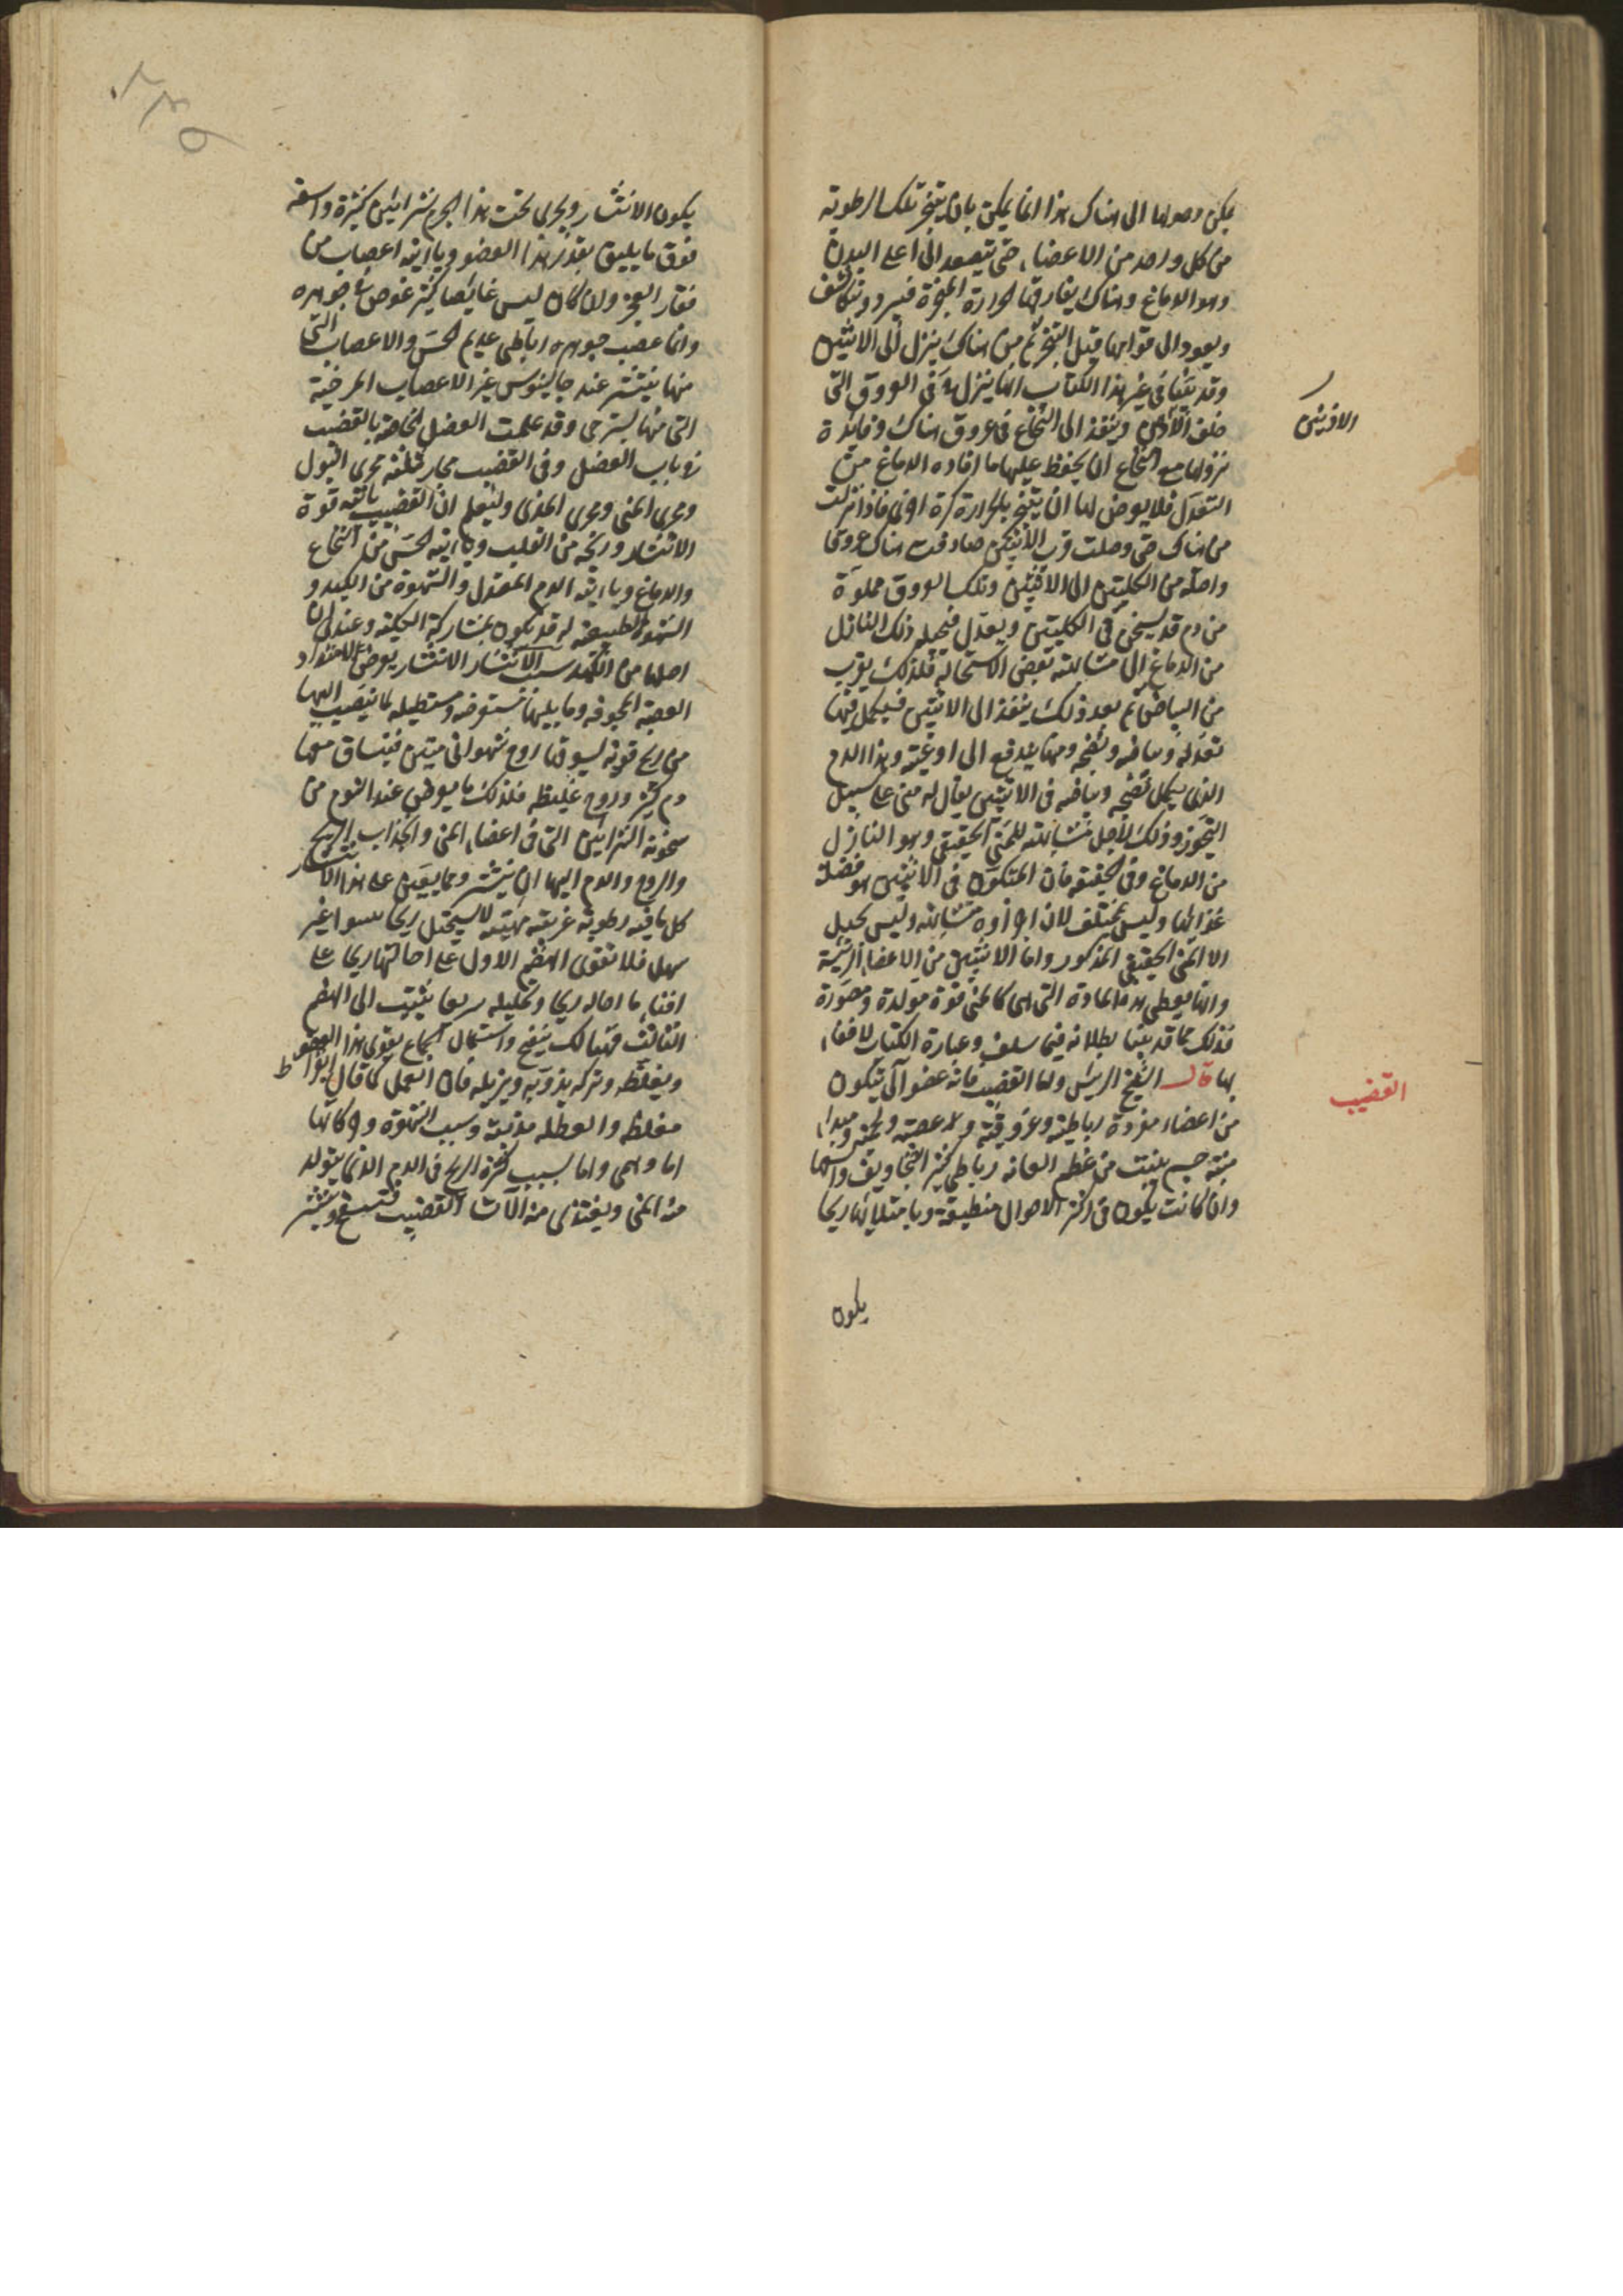 يمكن وصولها الى هناك هذا انما يمكن بان يتبخر تلك الرطوبة
من كل واحد من الاعضاء حتى يتصعد الى اعلى البدن
وهو الدماغ وهناك يفارقها الحرارة المبخرة فيبرد ويتكاثف
ويعود الى قوامها قبل التبخر ثم من هناك ينزل الى الانثيين
وقد بينا فى غير هذا الكتاب انها ينزل فى العروق التى
خلف الاذنين وينفذ الى النخاع فى عروق هناك وفائدة
الاذنين
نزولها مع النخاع ان يحفظ عليها ما افاده الدماغ من
التعدل فلا يعرض لها ان يتبخر بالحرارة كرة اخرى فاذا نزلت
من هناك حتى وصلت قرب الانثيين صادفت هناك عروقا
واصلة من الكليتين الى الانثيين وتلك العروق مملوة
من دم قد تسخن فى الكليتين وتعدل فيحيله ذلك النازل
من الدماغ الى مشابهته بعض الاستحالة فلذلك يقرب
من البياض ثم بعد ذلك ينفذ الى الانثيين فيكمل فيها
تعدله وبياضه ونضجه ومنها يندفع الى اوعيته وهذا الدم
الذى يكمل نضجه وبياضه فى الانثيين يقال له منى على سبيل
التجوز وذلك لاجل مشابهته للمنى الحقيقى وهو النازل
من الدماغ وفى الحقيقة فان المتكون فى الانثيين هو فضلة
غذائها وليس بمختلف لان اجزاءه متشابهة وليس بحبل
الا المنى الحقيقى المذكور واما ان الانثيين من الاعضاء الرئيسة
وانها يعطى هذه المادة التى هى كالمنى قوة مولدة ومصورة
فذلك مما قد بينا بطلانه فيما سلف وعبارة الكتاب لا خفاء
بها قال الشيخ الرئيس واما القضيب فانه عضو آلى يتكون
القضيب
من اعضاء مفردة رباطية وعروقية وعصبية ولحمية ومبدا
منبته جسم ينبت من عظم العانة رباطى كثير التجاويف واسعها
وان كانت يكون فى اكثر الاحوال منطبقة وبامتلائها ريحا
يكون
۲۳۵
يكون الانتشار ويجرى تحت هذا الجرم شرايين كثيرة واسعة
فوق ما يليق بقدر هذا العضو ويأتيه اعصاب من
فقار العجز وان كان ليس غائصا كثير غوص فى جوهره
وانما عصب جوهره رباطى عديم الحس والاعصاب التى
منها ينتشر عند جالينوس غير الاعصاب المرخية
التى منها يسترخى وقد علمت العضل الخاصة بالقضيب
فى باب العضل وفى القضيب مجار ثلثة مجرى البول
ومجرى المنى ومجرى المذى وليعلم ان القضيب يأتيه قوة
الانتشار وريحه من القلب ويأتيه الحس من النخاع
والدماغ ويأتيه الدم المعتدل والشهوة من الكبد و
الشهوة الطبيعية له قد يكون بمشاركة الكلية وعندى ان
اصلها من القلب سبب الانتشار الانتشار يعرض لامتداد
العصبة المجوفة وما يليها مستعرضة ومستطيلة لما ينصب اليها
من ريح قوية يسوقها روح شهوانى متين فينساق معها
دم كثير وروح غليظ فلذلك ما يعرض عند النوم من
سخونة الشرايين التى فى اعضاء المنى وانجذاب الريح
والروح والدم اليها ان ينتشر ومما يعين على هذا الانتشار
كل ما فيه رطوبة غريبة مهيئة لان يستحيل ريحا سوا غير
سهل فلا تقوى الهضم الاول على احالتها ريحا على
افناء ما احاله ريحا وتحليله سريعا بل يثبت الى الهضم
الثالث فهنالك ينفخ واستعمال الجماع يقوى هذا العضو
ويغلظه وتركه يذوبه ويزيله فان العمل كما قال ابقراط
مغلظ والعطلة مذيبة وسبب الشهوة وحركتها
اما وهمى واما بسبب كثرة الريح فى الدم الذى يتولد
منه المنى ويغتذى منه آلات القضيب فتنتفخ وينتشر